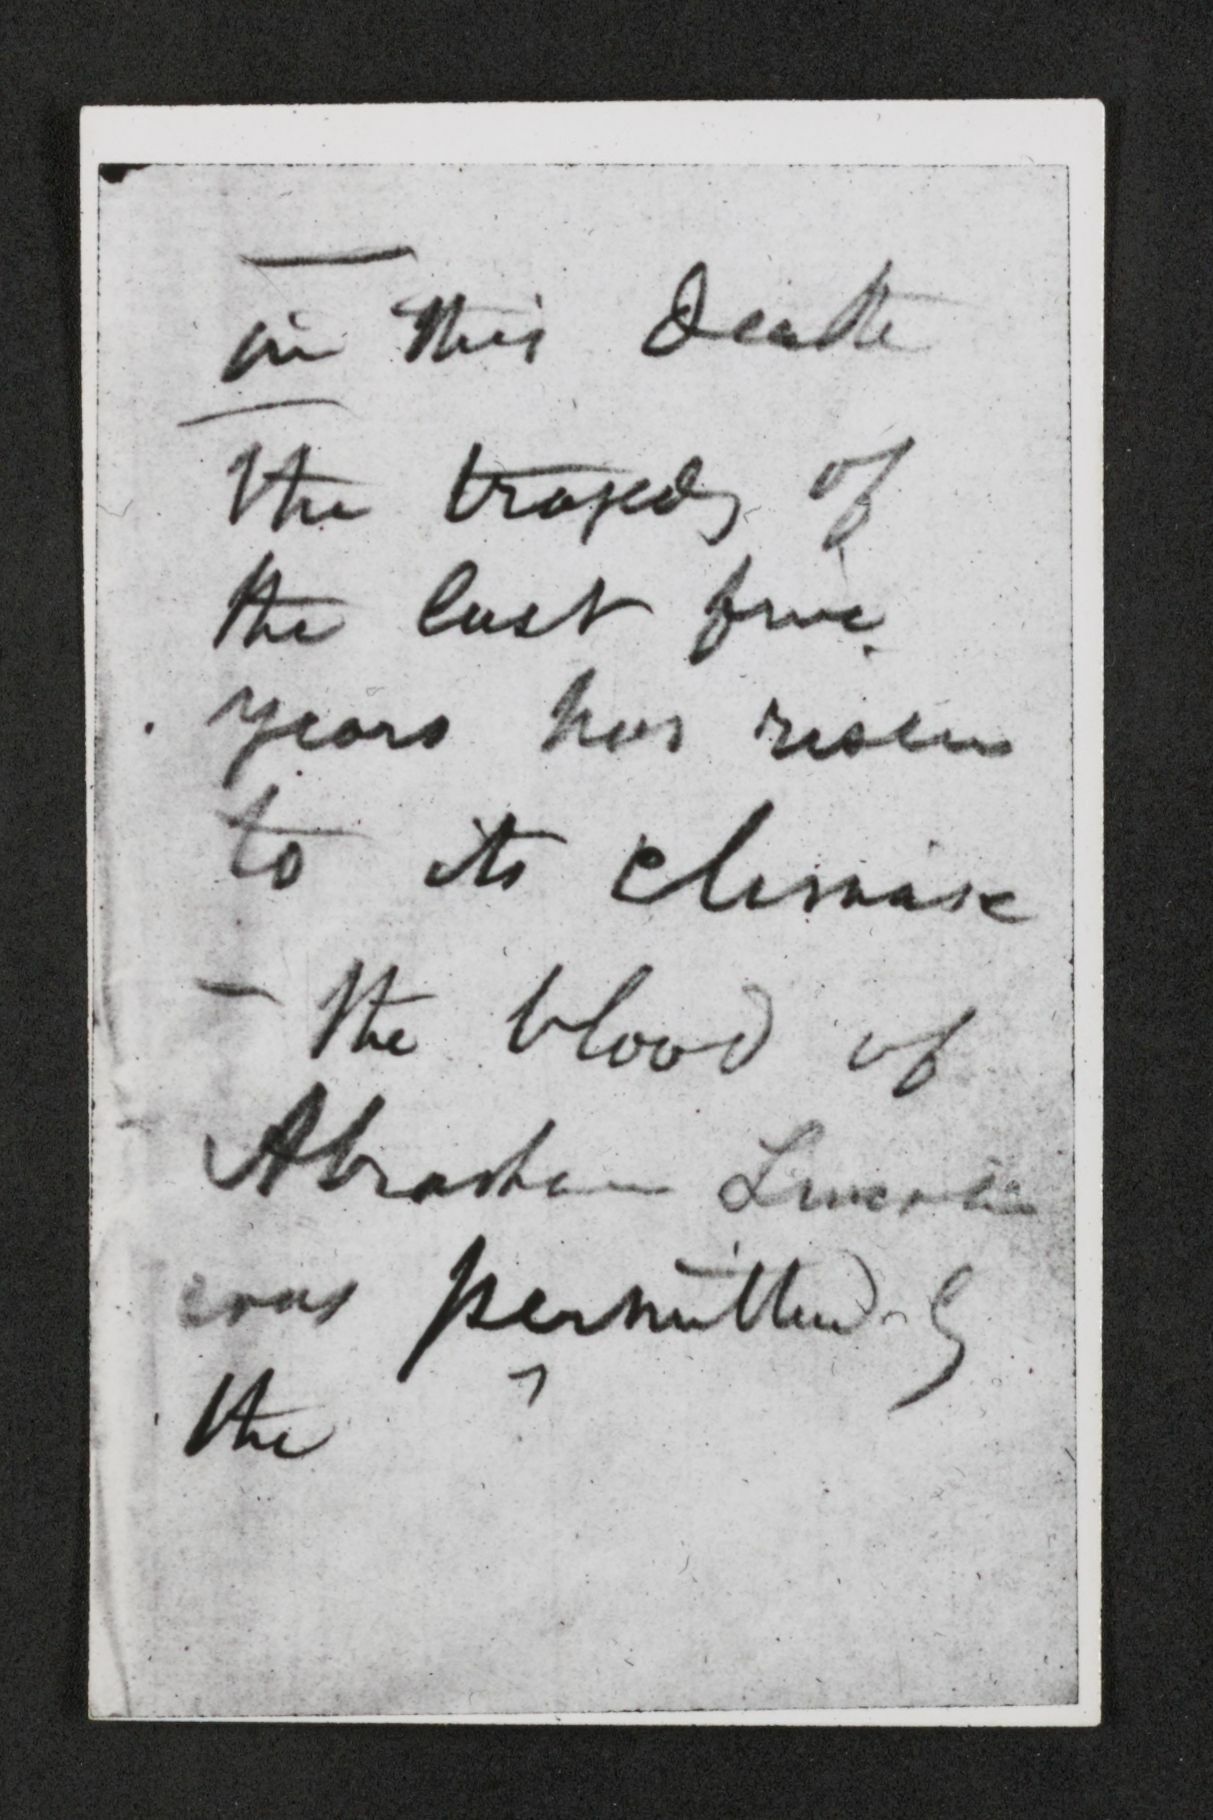 in this death
the tragedy of
the last five
years has risen
to its climax
— the blood of
Abraham Lincoln
was permitted by
the